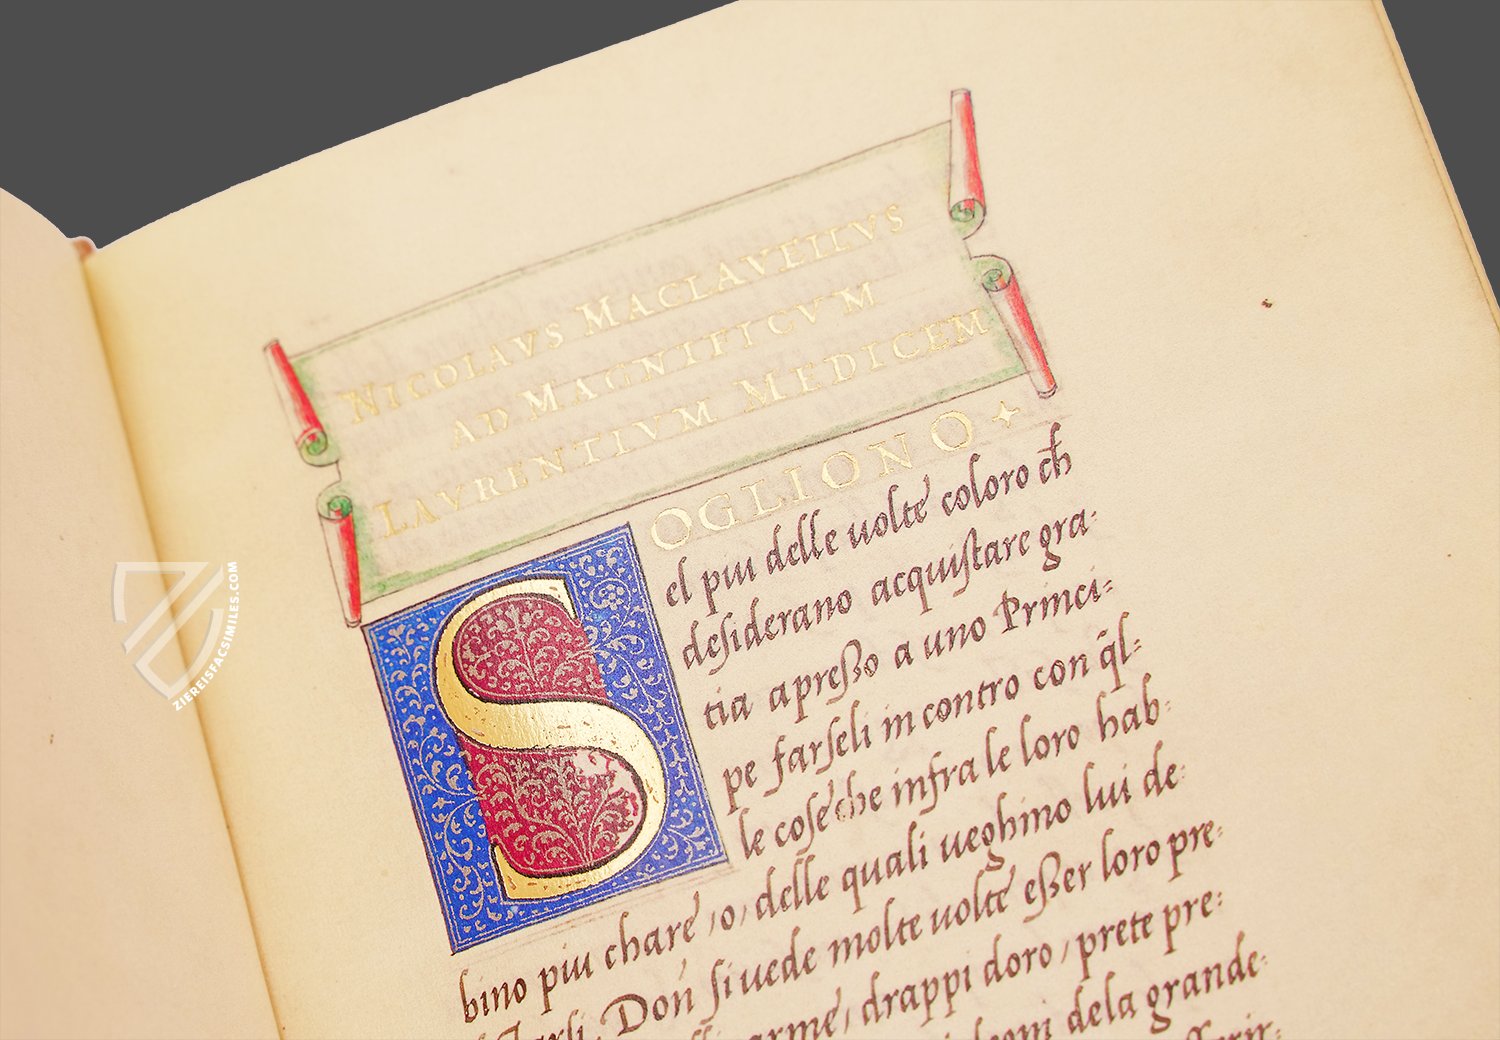 NICOLAVS MACLAVELLVS
AD MAGNIFICVM
LAVRENTIVM MEDICEM
SOGLIONO
el piu delle uolte coloro ch
desiderano acquistare gra-
tia apreßo a uno Princi-
pe farseli incontro con q̃l-
le cose che infra le loro hab-
bino piu chare, o, delle quali ueghino lui de-
Don si uede molte uolte eßer loro pre-
arme, drappi doro, prete pre-
dela grande-
ZIEREISFACSIMILES.COM